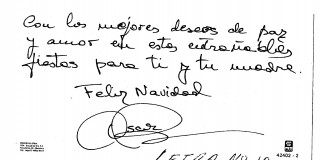 Con los mejores deseos de paz
y amor en estas entrañables
fiestas para ti y tu madre.
Feliz Navidad
Oscar
42402 - 2